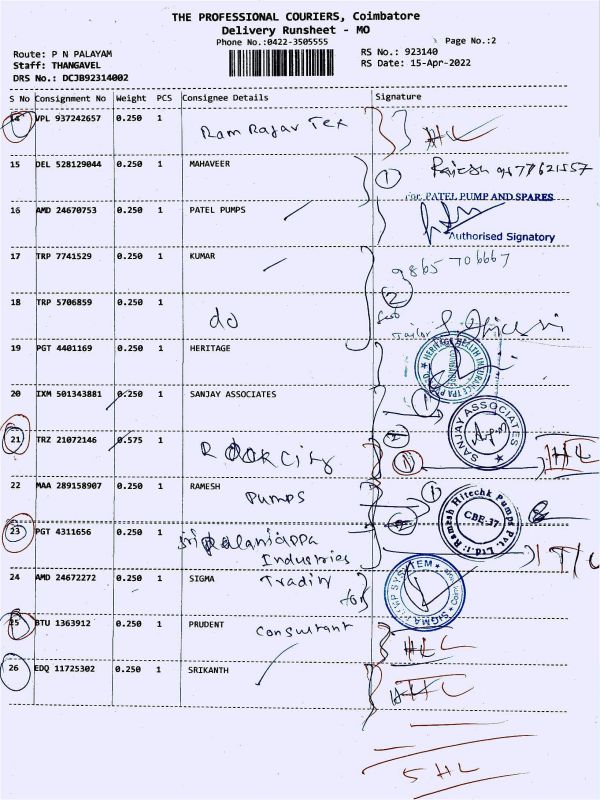 THE PROFESSIONAL COURIERS, Coimbatore
Delivery Runsheet - MO
Phone No.:0422-3505555
Page No.:2
Route: P N PALAYAM
RS No.: 923140
Staff: THANGAVEL
RS Date: 15-Apr-2022
DRS No.: DCJB92314002
S No Consignment No Weight PCS Consignee Details Signature
14 VPL 937242657 0.250 1
HL
15 DEL 528129044 0.250 1 MAHAVEER
1
for PATEL PUMP AND SPARES
16 AMD 24670753 0.250 1 PATEL PUMPS
Authorised Signatory
17 TRP 7741529 0.250 1 KUMAR
9865706667
2
18 TRP 5706859 0.250 1
do
19 PGT 4401169 0.250 1 HERITAGE
HERITAGE HEALTH INSURANCE TPA P LTD
20 IXM 501343881 0.250 1 SANJAY ASSOCIATES
1
SANJAY ASSOCIATES
21 TRZ 21072146 0.575 1
Rook City
HL
22 MAA 289158907 0.250 1 RAMESH
Pumps
1
Ramesh Hitechk Pumps Pvt. Ltd.
CBE-37
23 PGT 4311656 0.250 1 Sri Palaniappa
Industries
24 AMD 24672272 0.250 1 SIGMA
Trading
for
SIGMA SYSTEM
25 BTU 1363912 0.250 1 PRUDENT
Consultant
HL
26 EDQ 11725302 0.250 1 SRIKANTH
HL
5 HL